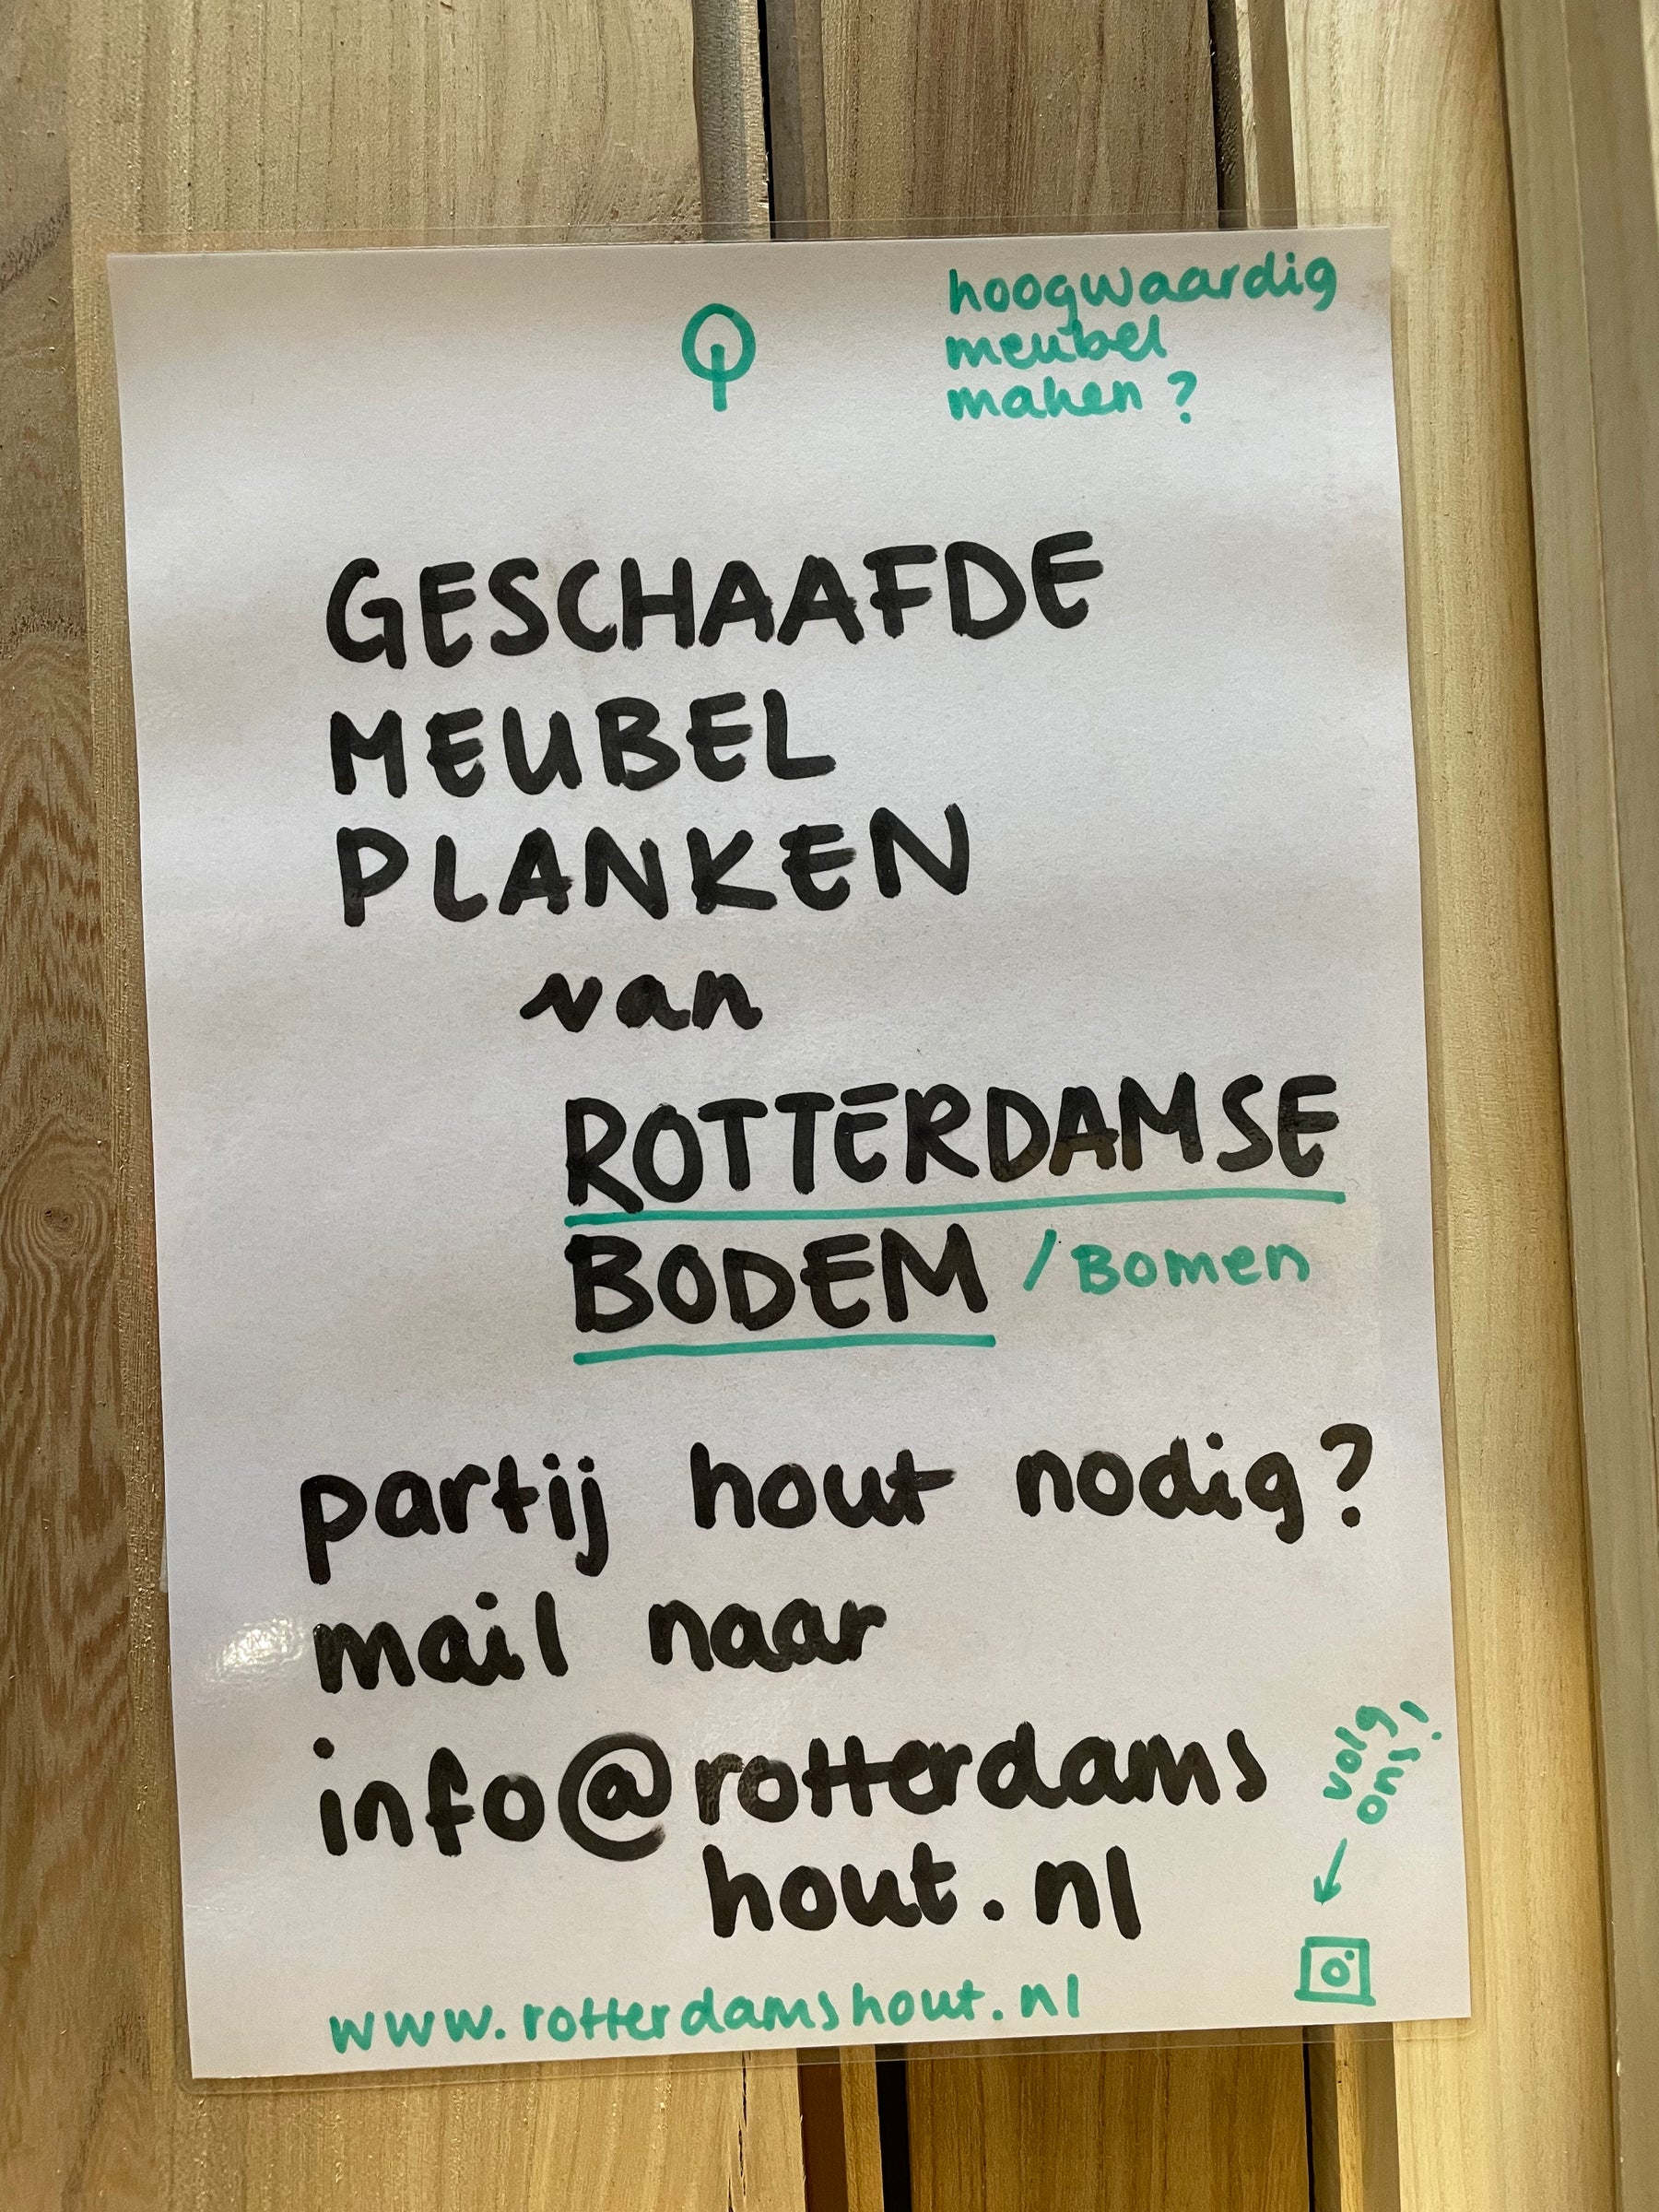 hoogwaardig
meubel
maken?
GESCHAAFDE
MEUBEL
PLANKEN
van
ROTTERDAMSE
BODEM /Bomen
partij hout nodig?
mail naar
info@rotterdams
hout.nl
volg
ons!
www.rotterdamshout.nl